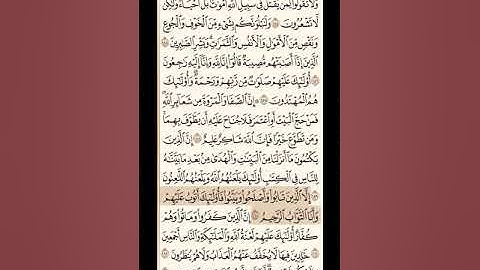 ولا تقولوا لمن يقتل في سبيل الله أموات بل أحياء ولكن
لا تشعرون ١٥٤ ولنبلونكم بشيء من الخوف والجوع
ونقص من الأموال والأنفس والثمرات وبشر الصابرين ١٥٥
الذين إذا أصابتهم مصيبة قالوا إنا لله وإنا إليه راجعون
١٥٦ أولئك عليهم صلوات من ربهم ورحمة وأولئك
هم المهتدون ١٥٧ إن الصفا والمروة من شعائر الله
فمن حج البيت أو اعتمر فلا جناح عليه أن يطوف بهما
ومن تطوع خيرا فإن الله شاكر عليم ١٥٨ إن الذين
يكتمون ما أنزلنا من البينات والهدى من بعد ما بيناه
للناس في الكتاب أولئك يلعنهم الله ويلعنهم اللاعنون
١٥٩ إلا الذين تابوا وأصلحوا وبينوا فأولئك أتوب عليهم
وأنا التواب الرحيم ١٦٠ إن الذين كفروا وماتوا وهم
كفار أولئك عليهم لعنة الله والملائكة والناس أجمعين
١٦١ خالدين فيها لا يخفف عنهم العذاب ولا هم ينظرون ١٦٢